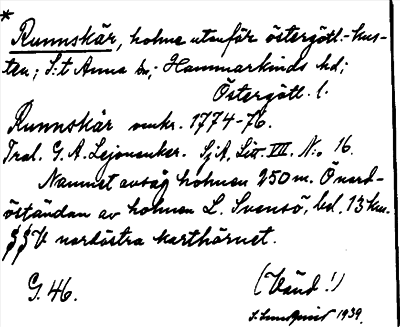 *
Runnskär, holme utanför östergötl.-kus-
ten; S:t Anna sn; Hammarkinds hd;
Östergötl. l.
Runnskär omkr. 1774-76.
Trol. G. A. Lejonanker. SjA, Lit. VII. No 16.
Namnet avsåg holmen 250 m. Önord-
östandan av holmen L. Svensö, bel. 13 km.
nordöstra karthörnet.
G. 46. (Vänd!)
1939.